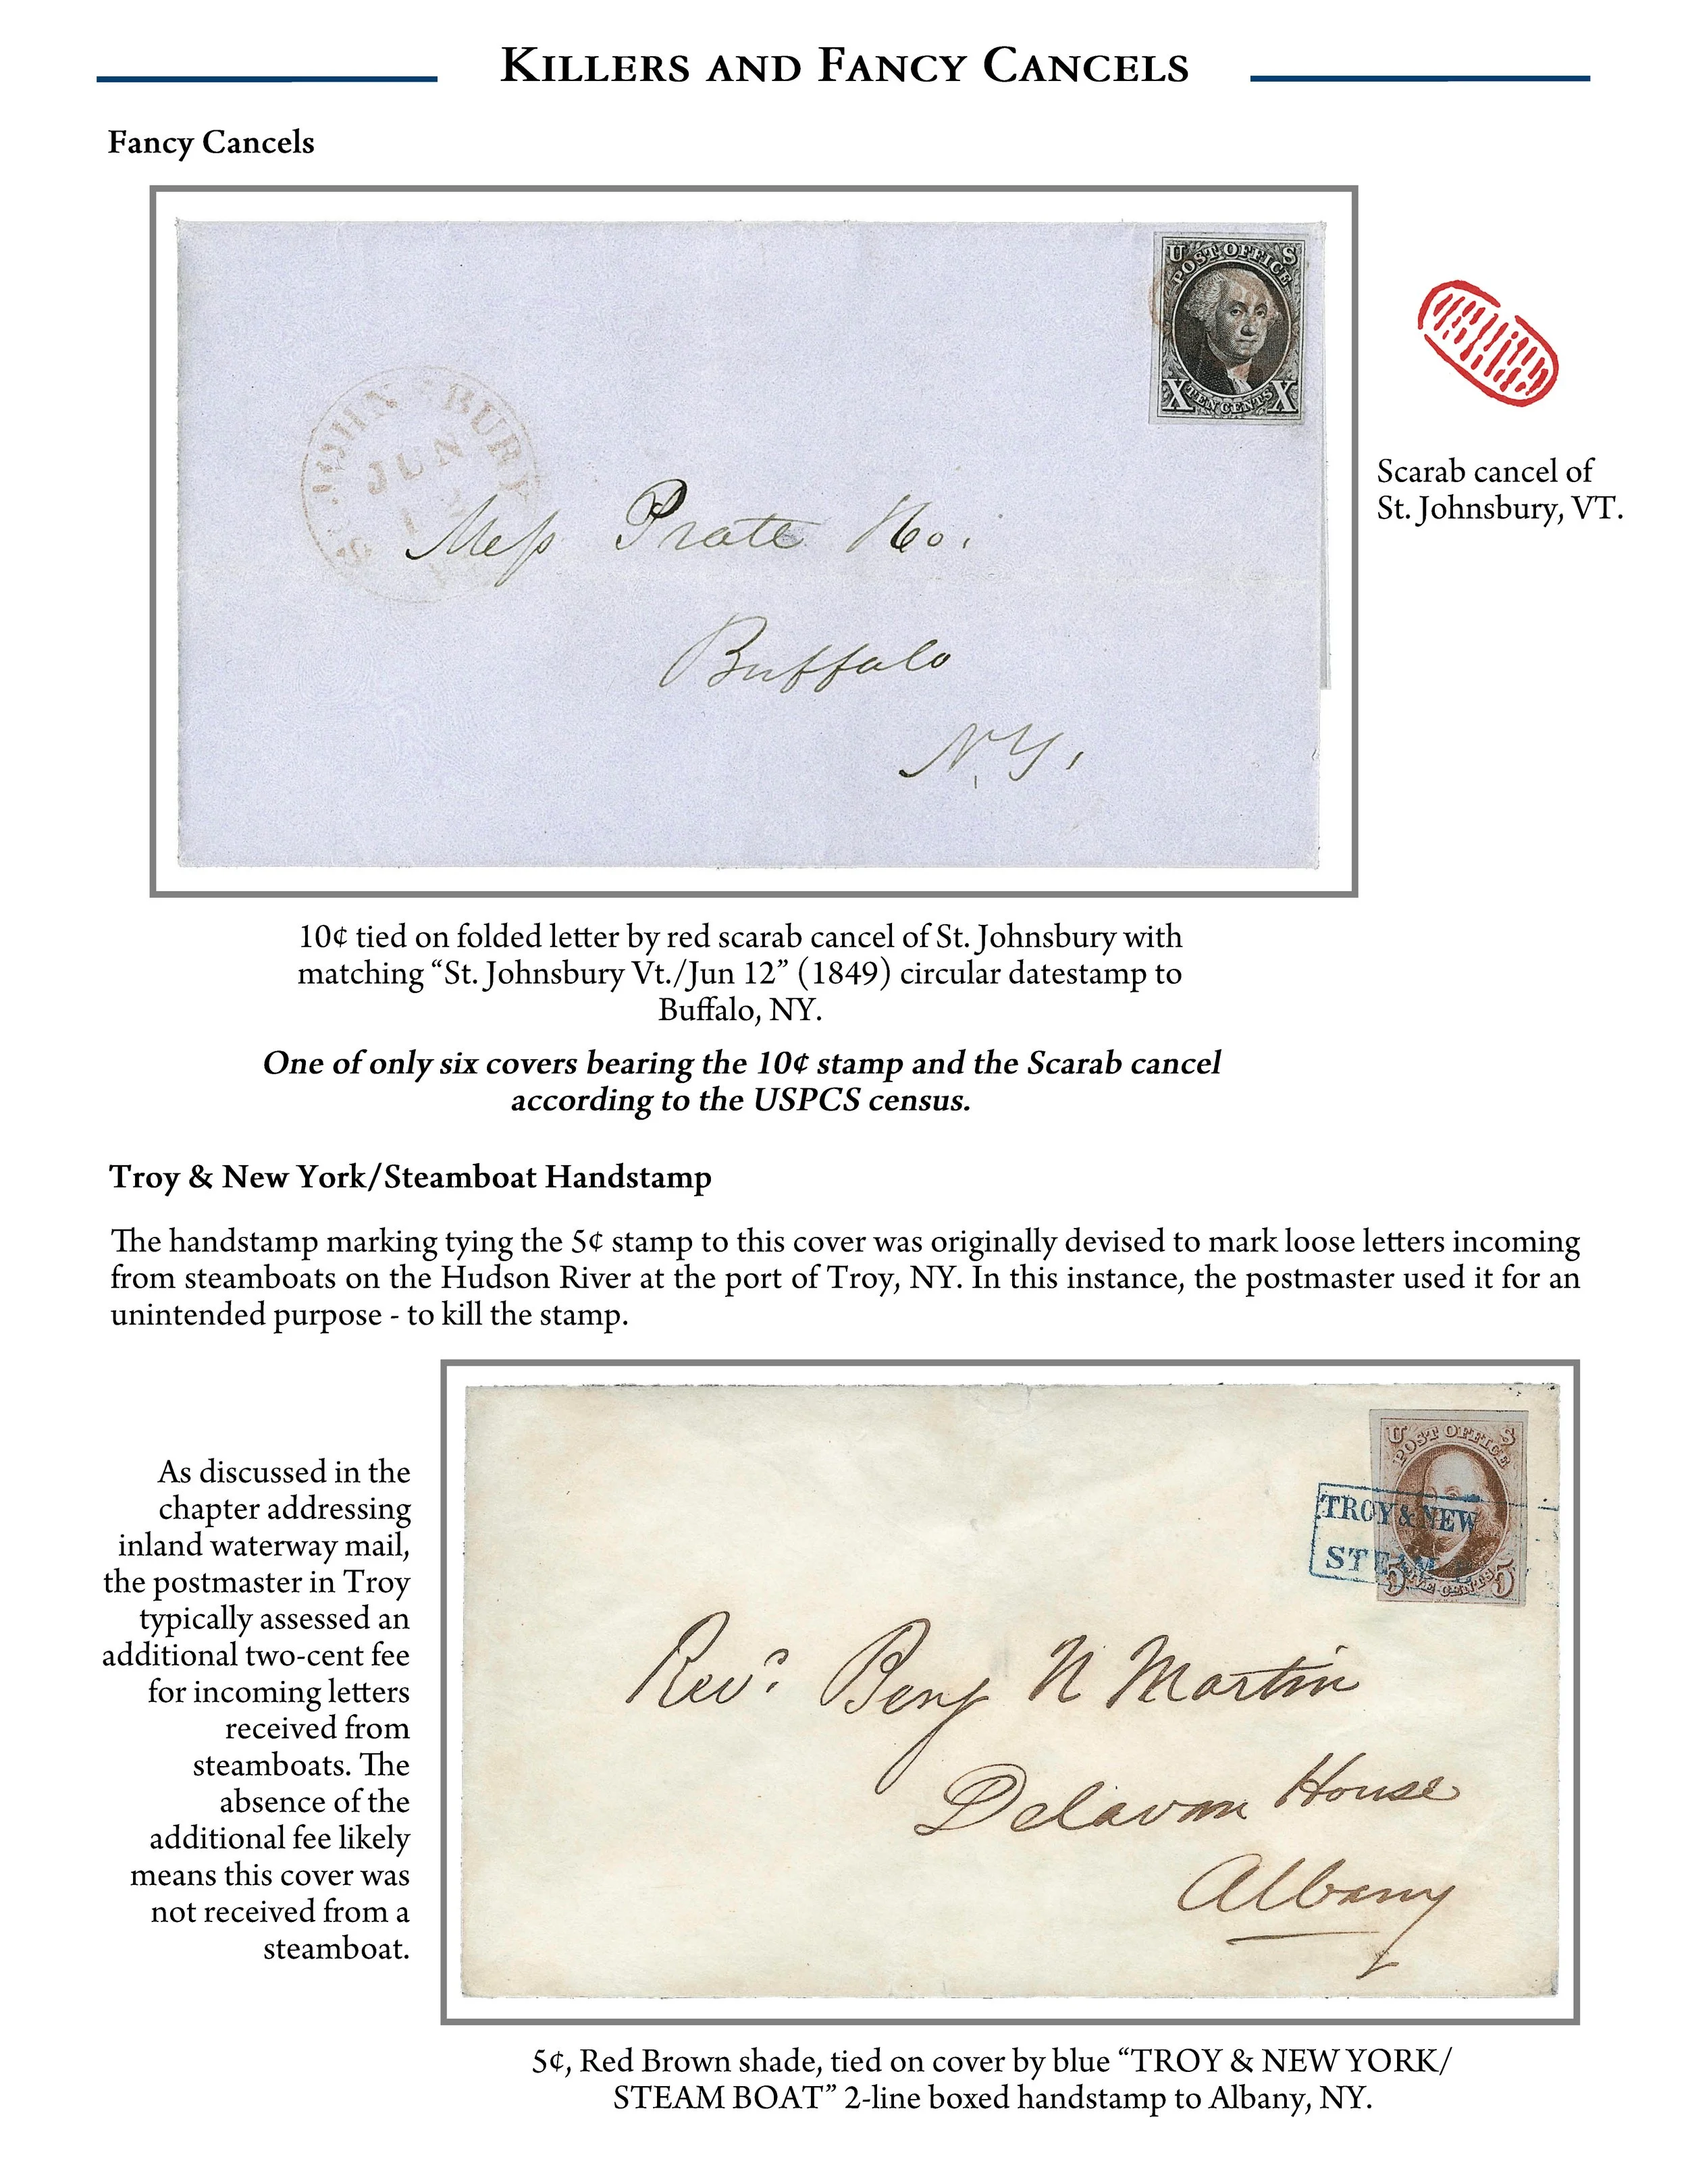 Killers and Fancy Cancels
Fancy Cancels
U S
POST OFFICE
X TEN CENTS X
ST. JOHNSBURY
JUN
12
Mess Prate &Co.
Buffalo
N.Y.
Scarab cancel of
St. Johnsbury, VT.
10¢ tied on folded letter by red scarab cancel of St. Johnsbury with
matching “St. Johnsbury Vt./Jun 12” (1849) circular datestamp to
Buffalo, NY.
One of only six covers bearing the 10¢ stamp and the Scarab cancel
according to the USPCS census.
Troy & New York/Steamboat Handstamp
The handstamp marking tying the 5¢ stamp to this cover was originally devised to mark loose letters incoming
from steamboats on the Hudson River at the port of Troy, NY. In this instance, the postmaster used it for an
unintended purpose - to kill the stamp.
As discussed in the
chapter addressing
inland waterway mail,
the postmaster in Troy
typically assessed an
additional two-cent fee
for incoming letters
received from
steamboats. The
absence of the
additional fee likely
means this cover was
not received from a
steamboat.
U S
POST OFFICE
5 FIVE CENTS 5
TROY & NEW
STEAM
Revd. Benj N Martin
Delavan House
Albany
5¢, Red Brown shade, tied on cover by blue “TROY & NEW YORK/
STEAM BOAT” 2-line boxed handstamp to Albany, NY.